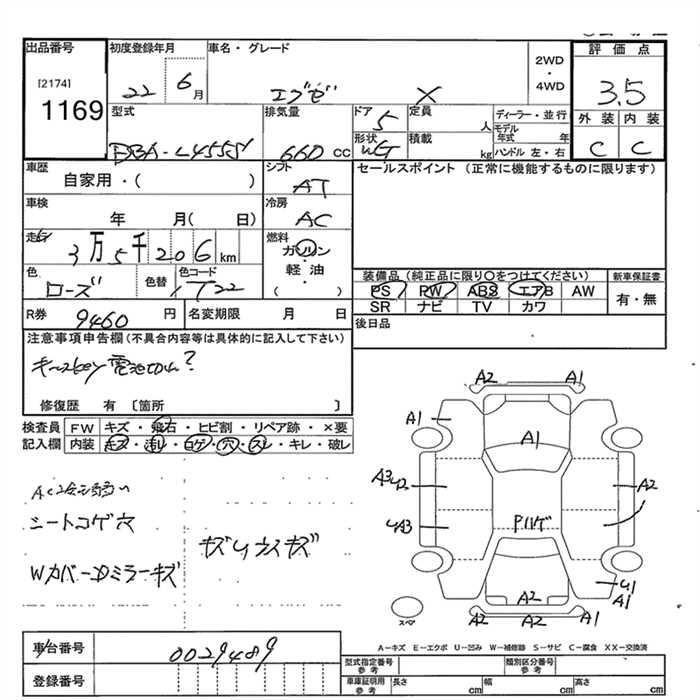 出品番号
[2174]
1169
初度登録年月
22 6月
車名・グレード
エブゼ X
2WD
・
4WD
評価点
3.5
外装 内装
C C
型式
DBA-L455S
排気量
660 CC
ドア
5
形状
定員
人
積載
kg
ディーラー・並行
モデル年式 年
ハンドル 左・右
車歴
自家用・( )
シフト
AT
セールスポイント (正常に機能するものに限ります)
車検
年 月( 日)
冷房
AC
走行
3万5千206km
燃料
ガソリン
・
軽油
( )
色
ローズ
色替
色コード
T22
装備品 (純正品に限り○をつけてください)
PS PW ABS エアB AW
SR ナビ TV カワ
新車保証書
有・無
R券
9460円
名変期限 月 日
後日品
注意事項申告欄 (不具合内容等は具体的に記入して下さい)
キーレスkey電池切れ?
修復歴 有 〔箇所 〕
検査員 FW キズ ・ 飛石 ・ ヒビ割 ・ リペア跡 ・ ×要
記入欄 内装 キズ・汚れ・コゲ・穴・スレ・キレ・破レ
シートコゲ穴
Wカバー・Dミラーキズ
A2 A1
A1
A1
A3 U2
A2
UA3
Pハゲ
U1
A1
A2
A2 A2
スペア
A-キズ E-エクボ U-凹み W-補修跡 S-サビ C-腐食 XX-交換済
車台番号
0029489
登録番号
型式指定番号
参考
類別区分番号
参考
車庫証明用
参考
長さ cm
幅 cm
高さ cm